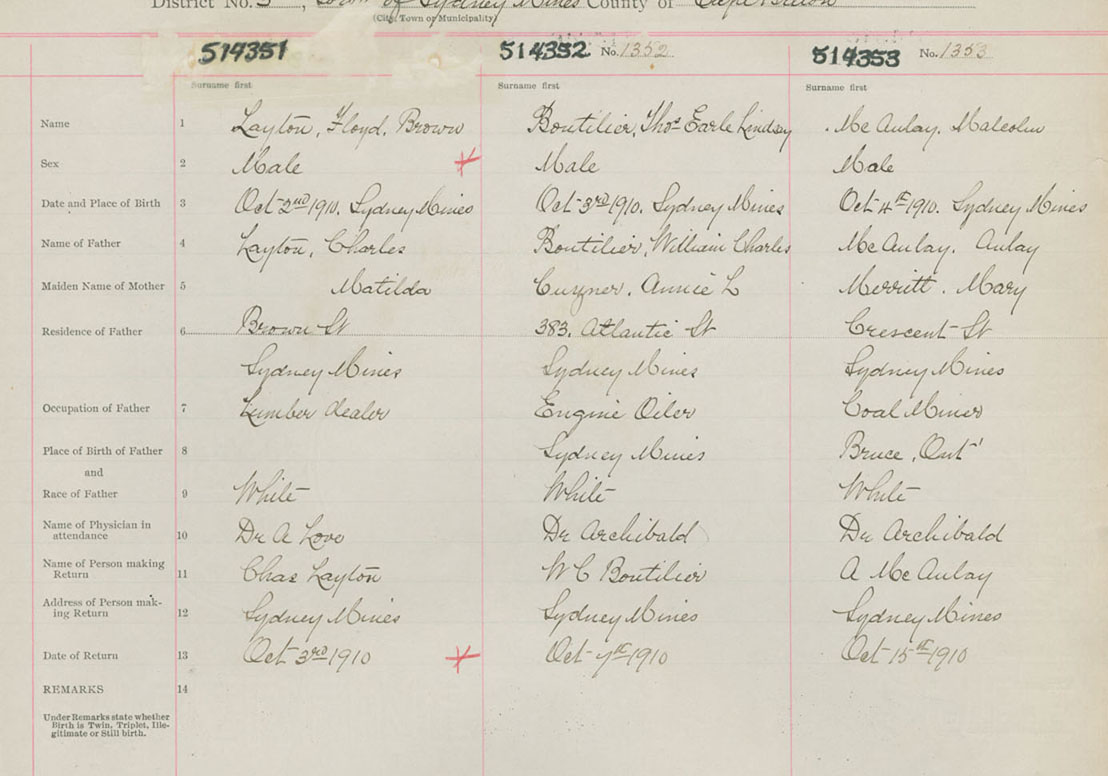 District No. 5, Town of Sydney Mines County of Cape Breton
(City, Town or Municipality)
514351 514352 No. 1352 514353 No. 1353
Surname first Surname first Surname first
Name 1 Layton, Floyd, Brown Boutilier, Thos Earle Lindsay Mc Aulay, Malcolm
Sex 2 Male Male Male
Date and Place of Birth 3 Oct 2nd 1910. Sydney Mines Oct 3rd 1910. Sydney Mines Oct 4th 1910. Sydney Mines
Name of Father 4 Layton, Charles Boutilier, William Charles Mc Aulay. Aulay
Maiden Name of Mother 5 Matilda Cuzner. Annie L Merritt. Mary
Residence of Father 6 Brown St 383. Atlantic St Crescent St
Sydney Mines Sydney Mines Sydney Mines
Occupation of Father 7 Lumber dealer Engine Oiler Coal Miner
Place of Birth of Father 8 Sydney Mines Bruce, Ont
and
Race of Father 9 White White White
Name of Physician in
attendance 10 Dr A Love Dr Archibald Dr Archibald
Name of Person making
Return 11 Chas Layton W C Boutilier A Mc Aulay
Address of Person mak-
ing Return 12 Sydney Mines Sydney Mines Sydney Mines
Date of Return 13 Oct 3rd 1910 Oct 7th 1910 Oct 15th 1910
REMARKS 14
Under Remarks state whether
Birth is Twin, Triplet, Ille-
gitimate or Still birth.